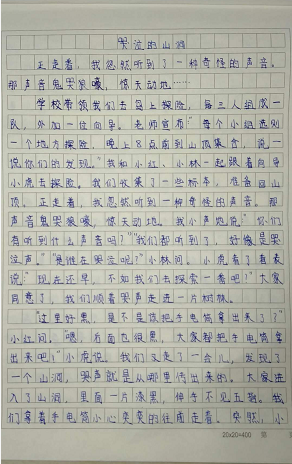 哭泣的山洞
正走着，我忽然听到了一种奇怪的声音。
那声音鬼哭狼嚎，惊天动地……
学校带领我们去岛上探险，每三人组成一
队，外加一位向导。老师宣布：“每个小组选则
一个地方探险，晚上8点前到山顶集合，说一
说你们的发现。”我和小红、小林一起跟着向导
小虎去探险。我们收集了一些标本，准备回山
顶。正走着，我忽然听到一种奇怪的声音。那
声音鬼哭狼嚎，惊天动地。我小声地说：“你们
有听到什么声音吗？”“我们都听到了，好像是哭
泣声。”“是谁在哭泣呢？”小林问。小虎看了看表
说：“现在还早，不如我们去探索一番吧？”大家
同意了，我们顺着哭声走进一片树林。
“这里好黑，是不是该把手电筒拿出来了？”
小红问。“嗯，后面也很黑，大家都把手电筒拿
出来吧！”小虎说。我们又走了一会儿，发现了
一个山洞，哭声就是从哪里传出来的。大家进
入了山洞，里面一片漆黑，伸手不见五指。我
们拿着手电筒小心突突的往前走着。突然，小
20x20=400 第